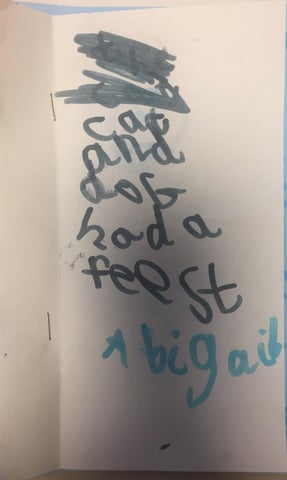 cat
and
dog
had a
feest
Abigail